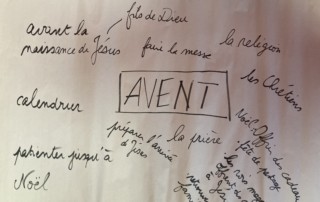 fils de Dieu
avant la
naissance de Jésus
faire la messe
la religion
les Chrétiens
AVENT
calendrier
préparer l'arrivée
de Jésus
la prière
patienter jusqu'à
Noël
Noël
Offrir des cadeaux
fête de partage
les rois mages
à Jésus